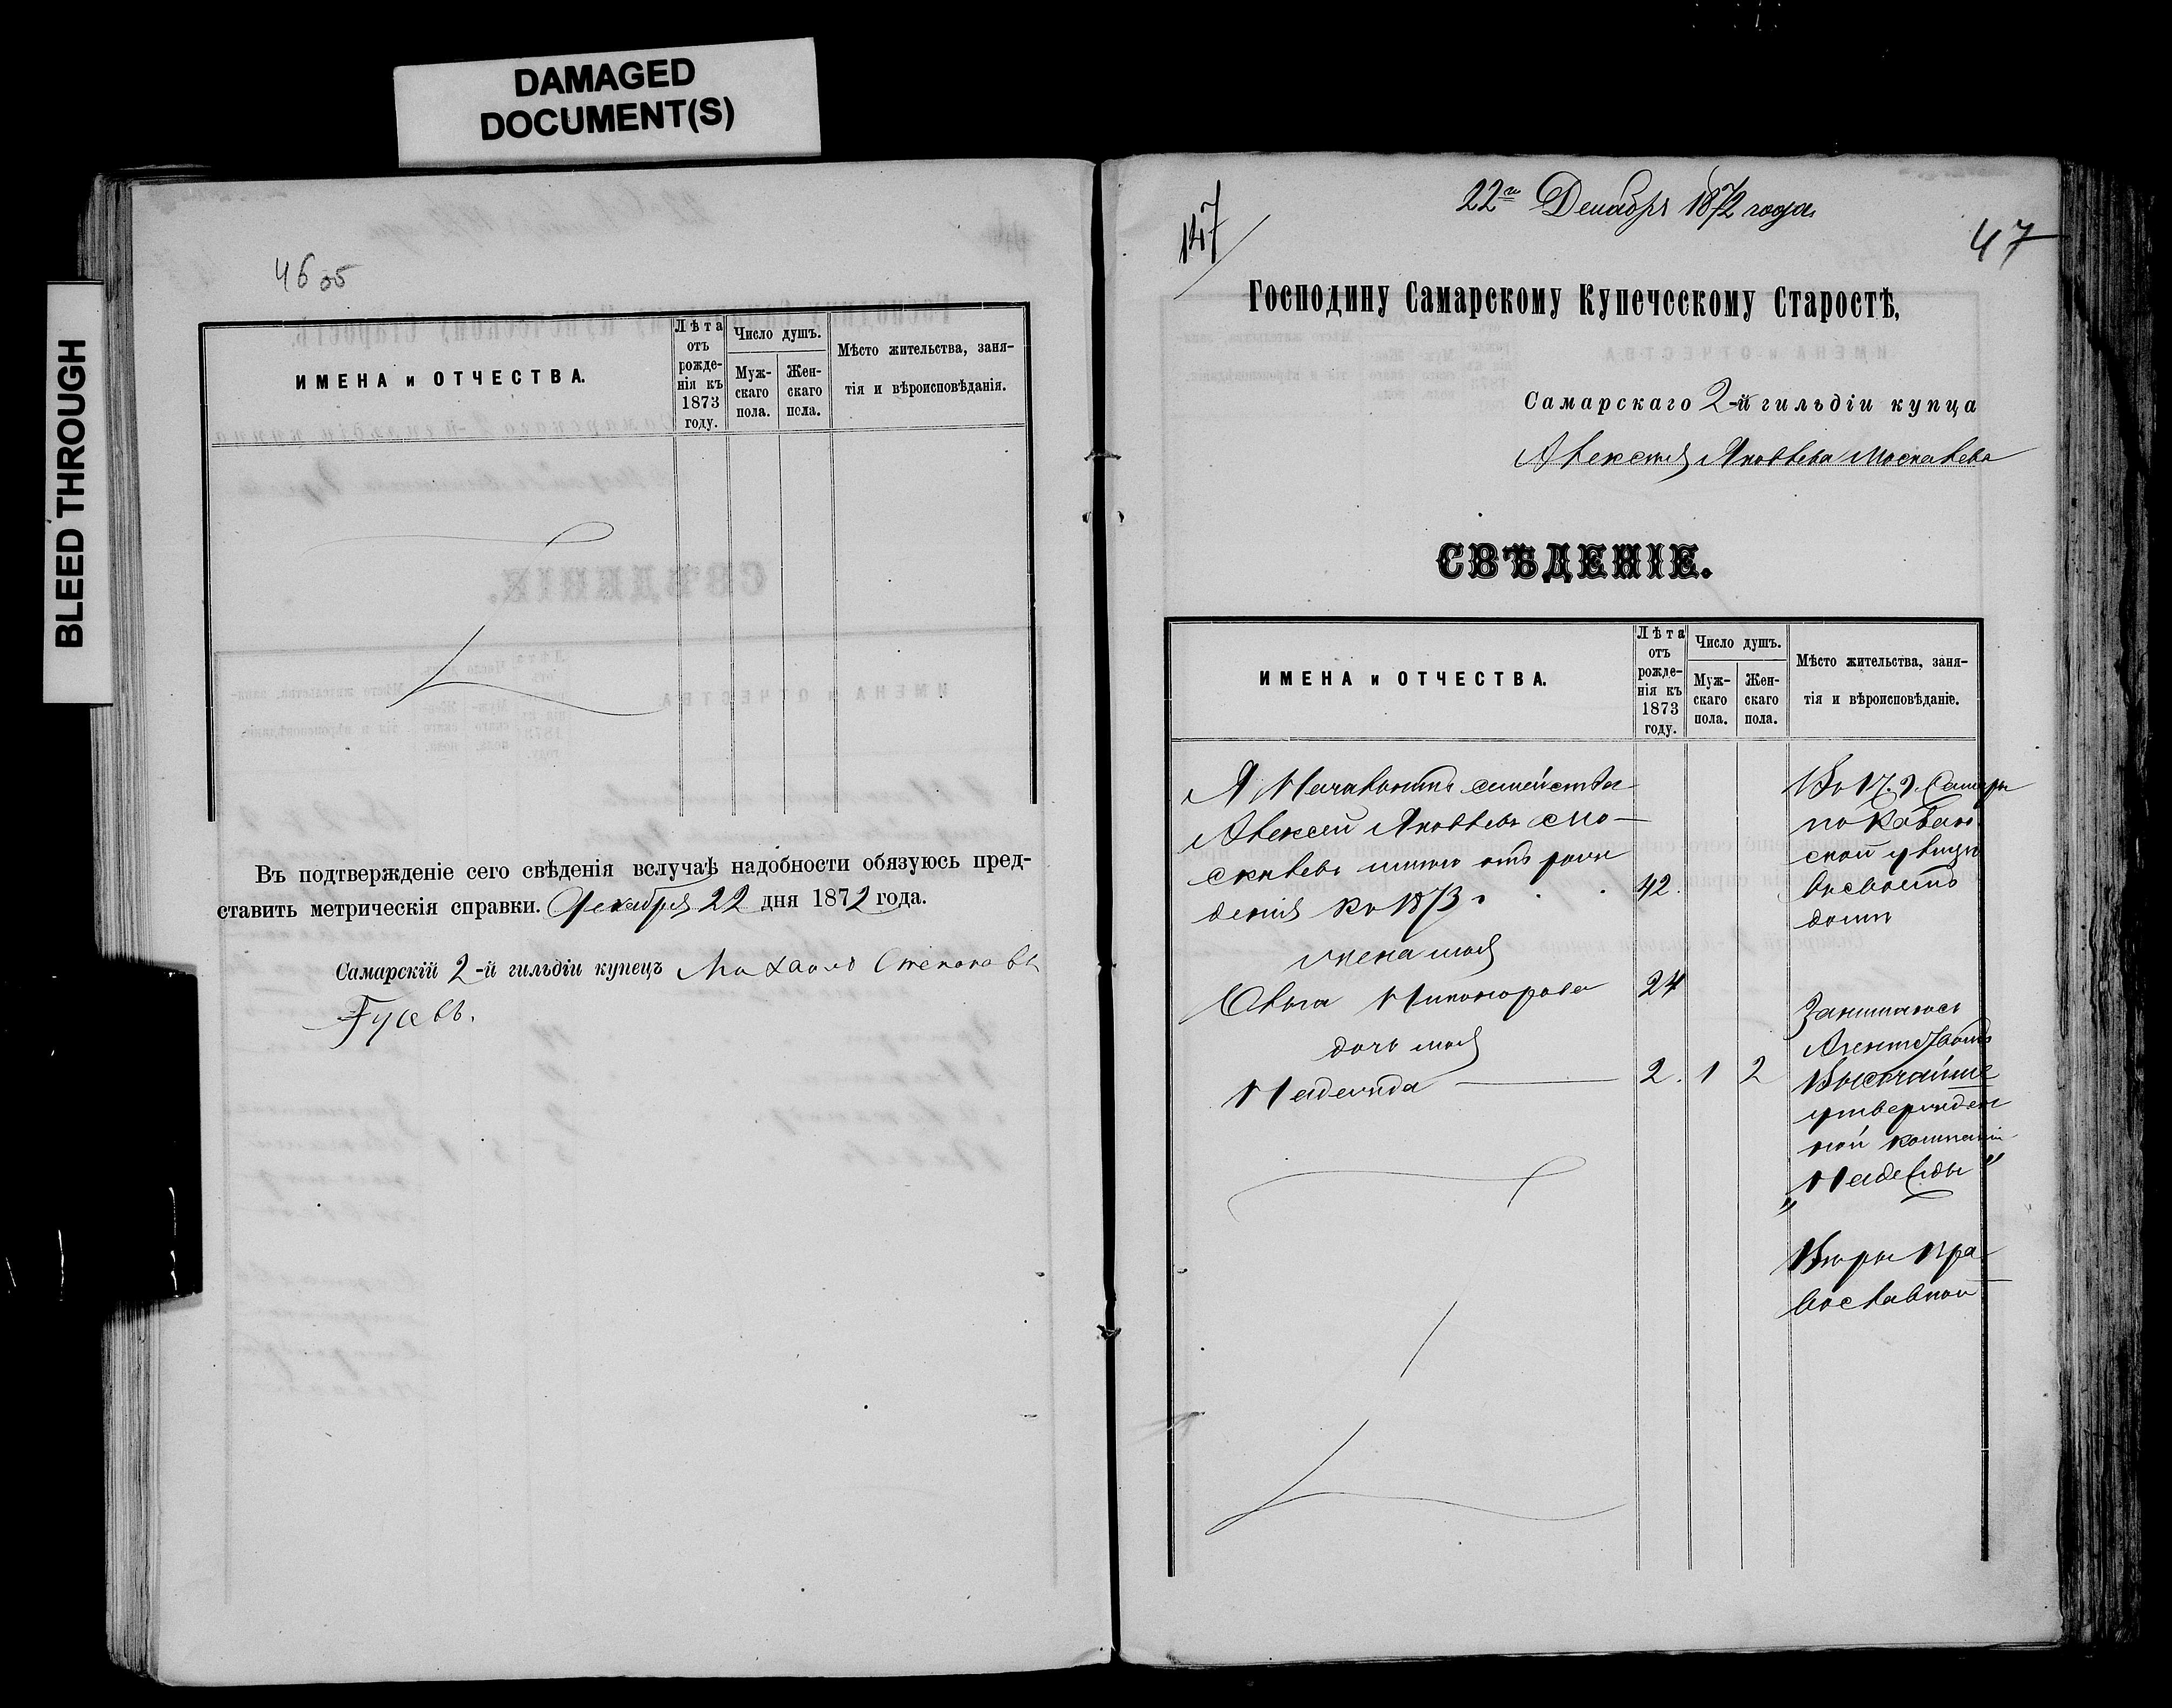 DAMAGED
DOCUMENT(S)
BLEED THROUGH
46 об
ИМЕНА и ОТЧЕСТВА.
Лѣта
отъ
рожде-
нія къ
1873
году.
Число душъ.
Муж-
скаго
пола.
Жен-
скаго
пола.
Мѣсто жительства, заня-
тія и вѣроисповѣданія.
Въ подтвержденіе сего свѣденія вслучаѣ надобности обязуюсь пред-
ставить метрическія справки. Декабря 22 дня 1872 года.
Самарскій 2-й гильдіи купецъ Михаилъ Степановъ
Гусевъ.
147
22го Декабря 1872 года
47
Господину Самарскому Купеческому Старостѣ,
Самарскаго 2-й гильдіи купца
Алексея Яковлева
СВѢДЕНІЕ.
ИМЕНА и ОТЧЕСТВА.
Лѣта
отъ
рожде-
нія къ
1873
году.
Число душъ.
Муж-
скаго
пола.
Жен-
скаго
пола.
Мѣсто жительства, заня-
тія и вѣроисповѣданіе.
Я Начальникъ семейства
Алексей Яковлевъ Мо-
отъ рож
денія къ 1873 г. 42.
жена моя
Ольга Никонорова 24
дочь моя
Надежда 2. 1 2
Въ Г. Самары
по
ской улицы
въ своемъ
доме
Занимаюсь
Агентствомъ
Высочайше
утвержден
ной компаніи
„Надежды"
Веры Пра
вославной